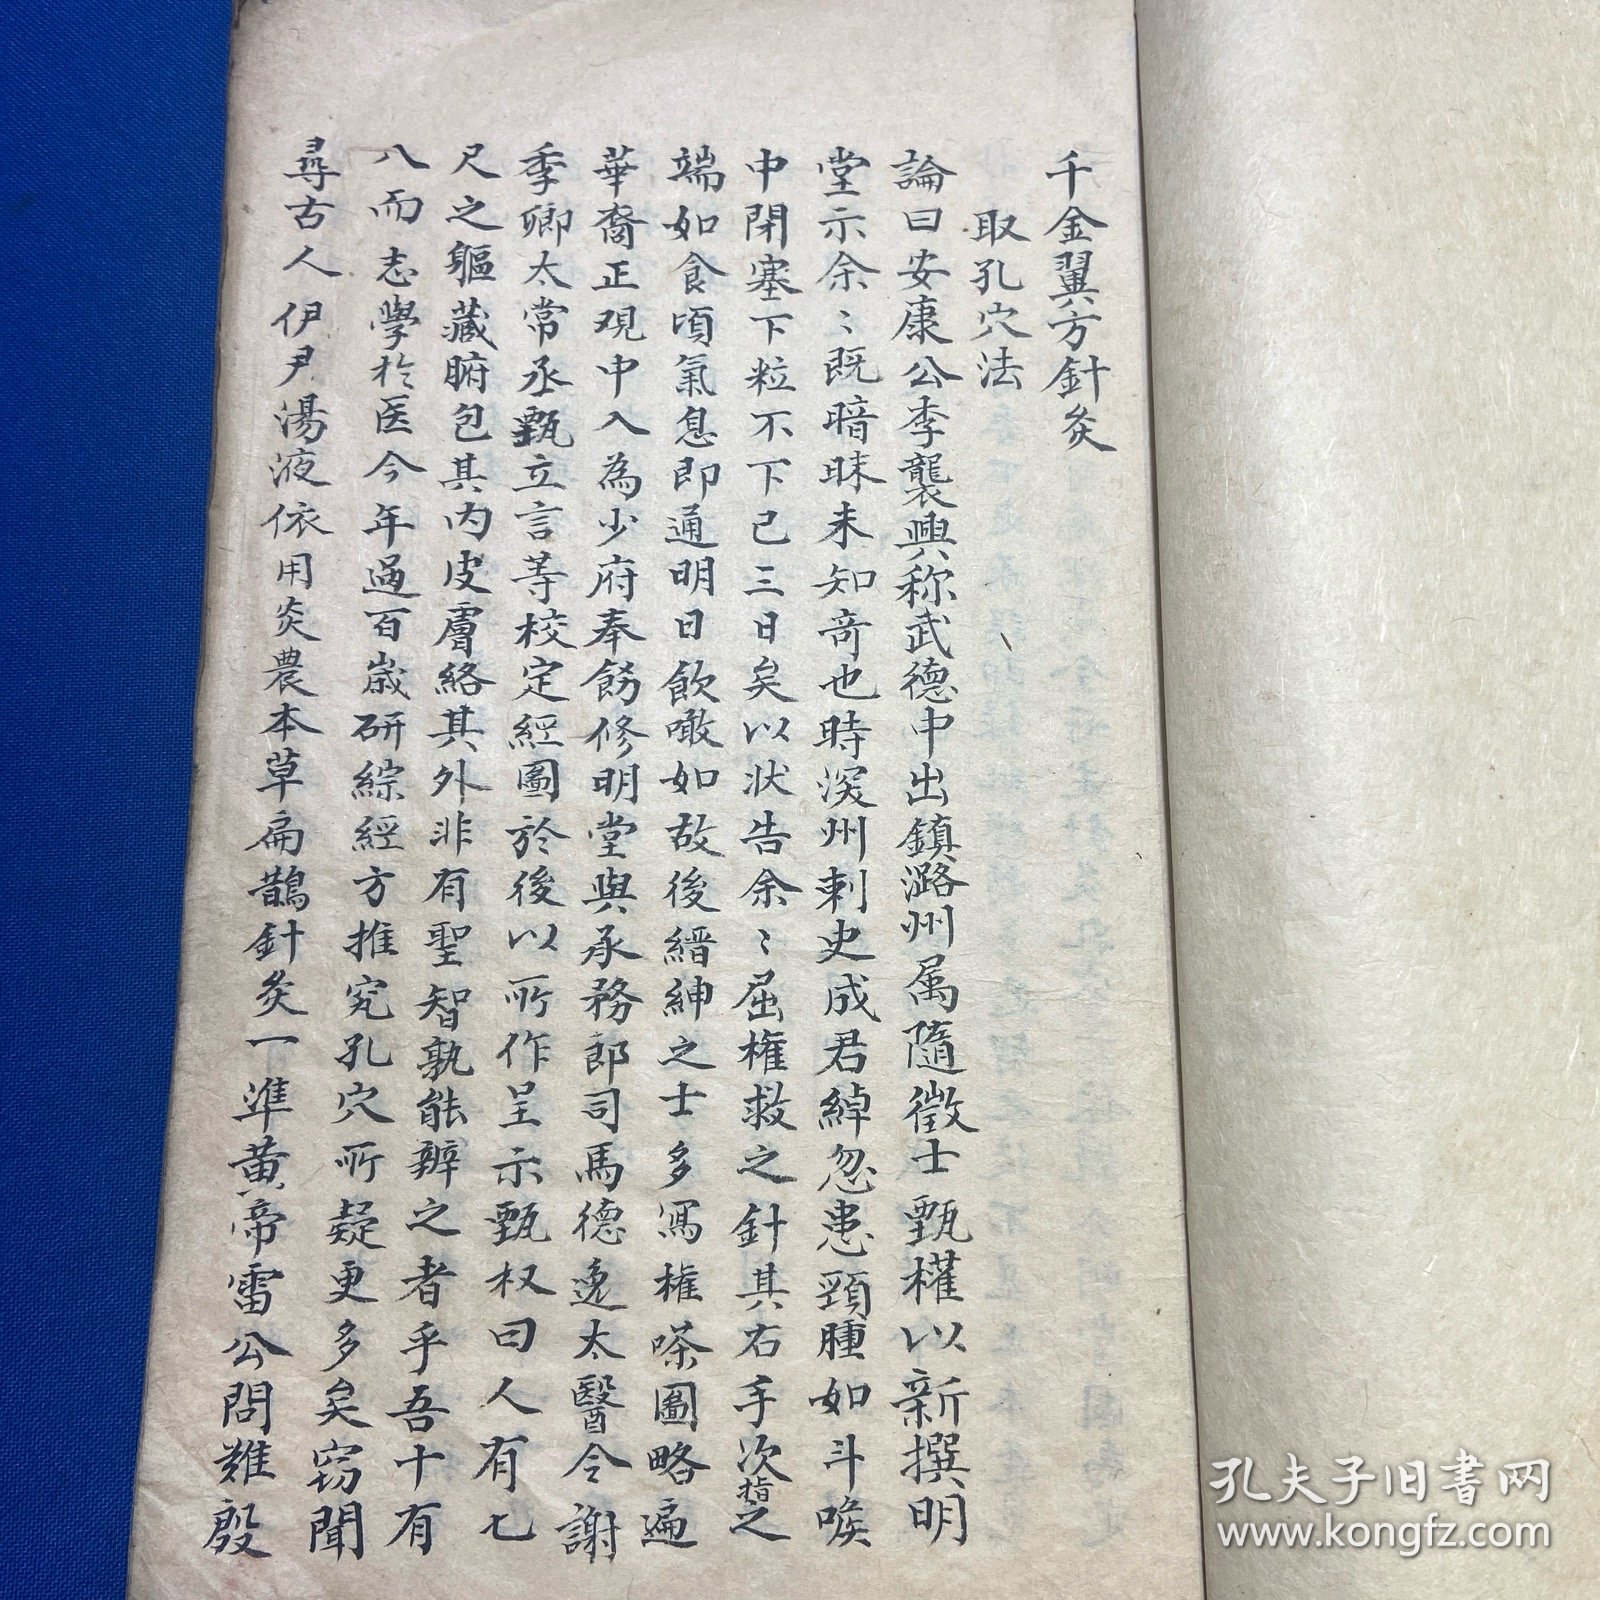 千金翼方針灸
取孔穴法
論曰安康公李襲興称武德中出鎮潞州属隨徵士甄權以新撰明
堂示余〻既暗昧未知奇也時深州刺史成君綽忽患頸腫如斗喉
中閉塞下粒不下已三日矣以状告余〻屈權救之針其右手次指之
端如食頃氣息即通明日飲噉如故後縉紳之士多寫權㗎圖略遍
華裔正观中入為少府奉餝修明堂與承務郎司馬德逸太醫令謝
季卿太常丞甄立言等校定經圖於後以所作呈示甄权曰人有七
尺之軀藏腑包其内皮膚絡其外非有聖智孰能辨之者乎吾十有
八而志學於医今年過百歲研綜經方推究孔穴所疑更多矣窃聞
尋古人伊尹湯液依用炎農本草扁鵲針灸一準黄帝雷公問難殷
孔夫子旧书网
www.kongfz.com